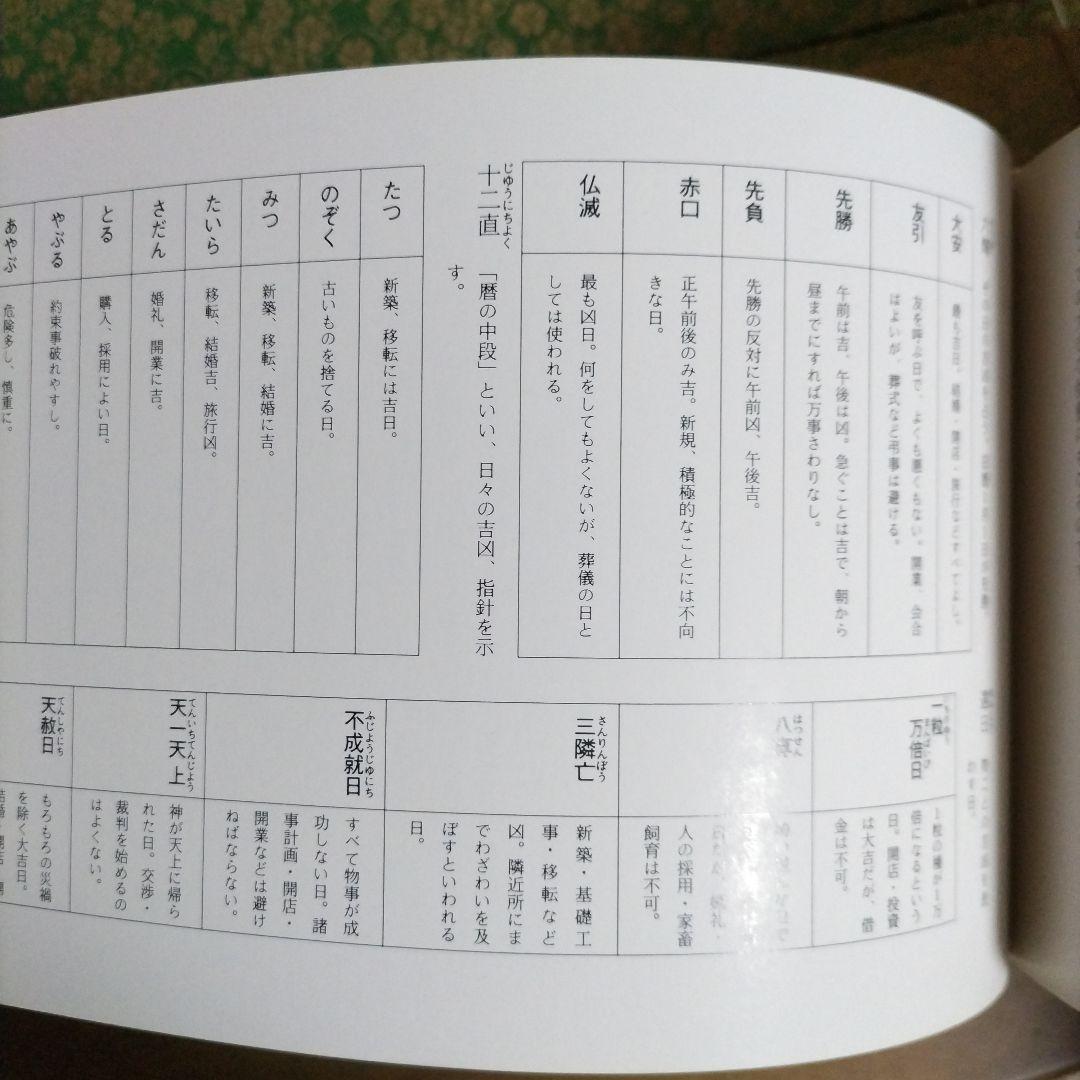 大安
勝ち吉日。結婚・開店・旅行などすべてよし。
友引
友を呼ぶ日で、よくも悪くもない。開業、会合
はよいが、葬式など弔事は避ける。
先勝
午前は吉、午後は凶。急ぐことは吉で、朝から
昼までにすれば万事さわりなし。
先負
先勝の反対に午前凶、午後吉。
赤口
正午前後のみ吉。新規、積極的なことには不向
きな日。
仏滅
最も凶日。何をしてもよくないが、葬儀の日と
しては使われる。
じゆうにちよく
十二直
「暦の中段」といい、日々の吉凶、指針を示
す。
たつ
新築、移転には吉日。
のぞく
古いものを捨てる日。
みつ
新築、移転、結婚に吉。
たいら
移転、結婚吉、旅行凶。
さだん
婚礼、開業に吉。
とる
購入、採用によい日。
やぶる
約束事破れやすし。
あやぶ
危険多し、慎重に。
一粒
万倍日
1粒の種が1万
倍になるという
日。開店・投資
は大吉だが、借
金は不可。
はつせん
八専
婚礼・
人の採用・家畜
飼育は不可。
さんりんぼう
三隣亡
新築・基礎工
事・移転など
凶。隣近所にま
でわざわいを及
ぼすといわれる
日。
ふじようじゆにち
不成就日
すべて物事が成
功しない日。諸
事計画・開店・
開業などは避け
ねばならない。
てんいちてんじよう
天一天上
神が天上に帰ら
れた日。交渉・
裁判を始めるの
はよくない。
てんしやにち
天赦日
もろもろの災禍
を除く大吉日。
結婚・開店・開